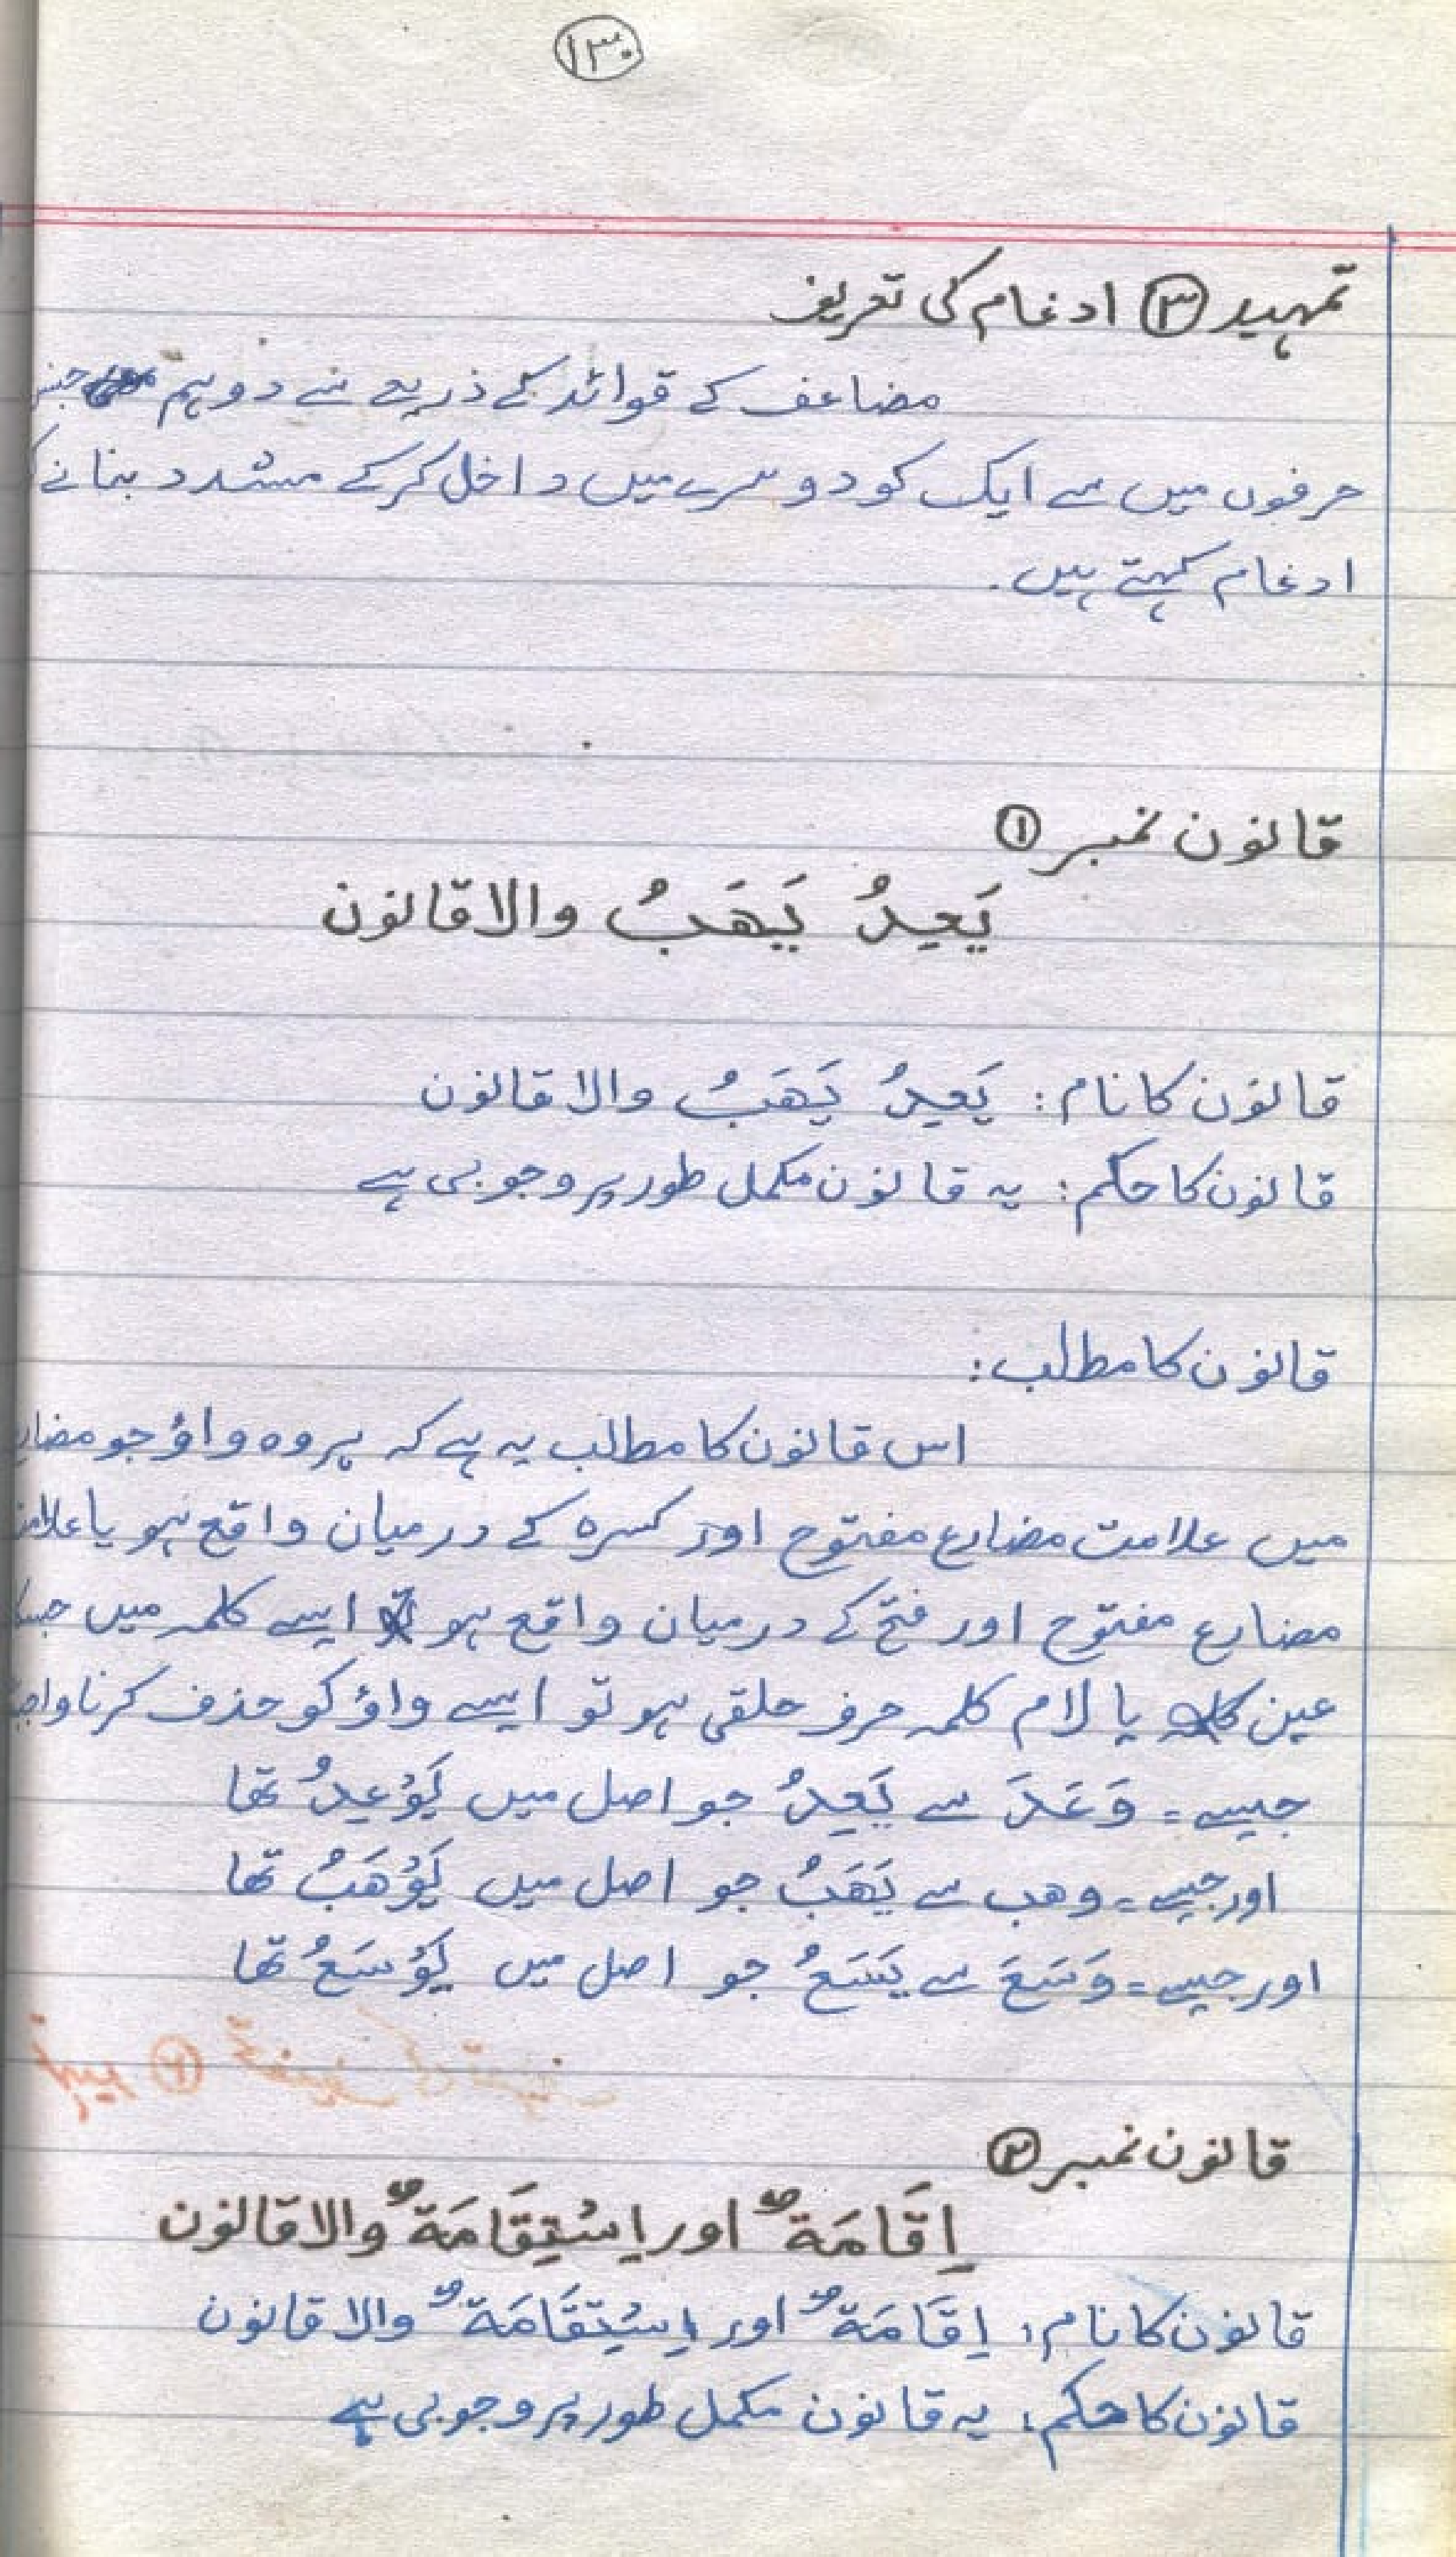 ۱۳۰
تمہید ۳ ادغام کی تعریف
مضاعف کے قوائد کے ذریعے سے دو ہم جنس
حرفوں میں سے ایک کو دوسرے میں داخل کرکے مشدد بنانے
ادغام کہتے ہیں۔
قانون نمبر ۱
یَعِدُ یَہَبُ والا قانون
قانون کا نام: یَعِدُ یَہَبُ والا قانون
قانون کا حکم: یہ قانون مکمل طور پر وجوبی ہے
قانون کا مطلب:
اس قانون کا مطلب یہ ہے کہ ہر وہ واؤ جو مضارع
میں علامت مضارع مفتوح اور کسرہ کے درمیان واقع ہو یا علامت
مضارع مفتوح اور فتح کے درمیان واقع ہو ایسے کلمہ میں جسکا
عین کلمہ یا لام کلمہ حرف حلقی ہو تو ایسے واؤ کو حذف کرنا
جیسے = وَعَدَ سے یَعِدُ جو اصل میں یَوْعِدُ تھا
اور جیسے = وھب سے یَھَبُ جو اصل میں یَوْھَبُ تھا
اور جیسے = وَسَعَ سے یَسَعُ جو اصل میں یَوْسَعُ تھا
قانون نمبر ۲
اِقَامَةٌ اور اِسْتِقَامَةٌ والا قانون
قانون کا نام: اِقَامَةٌ اور اِسْتِقَامَةٌ والا قانون
قانون کا حکم: یہ قانون مکمل طور پر وجوبی ہے